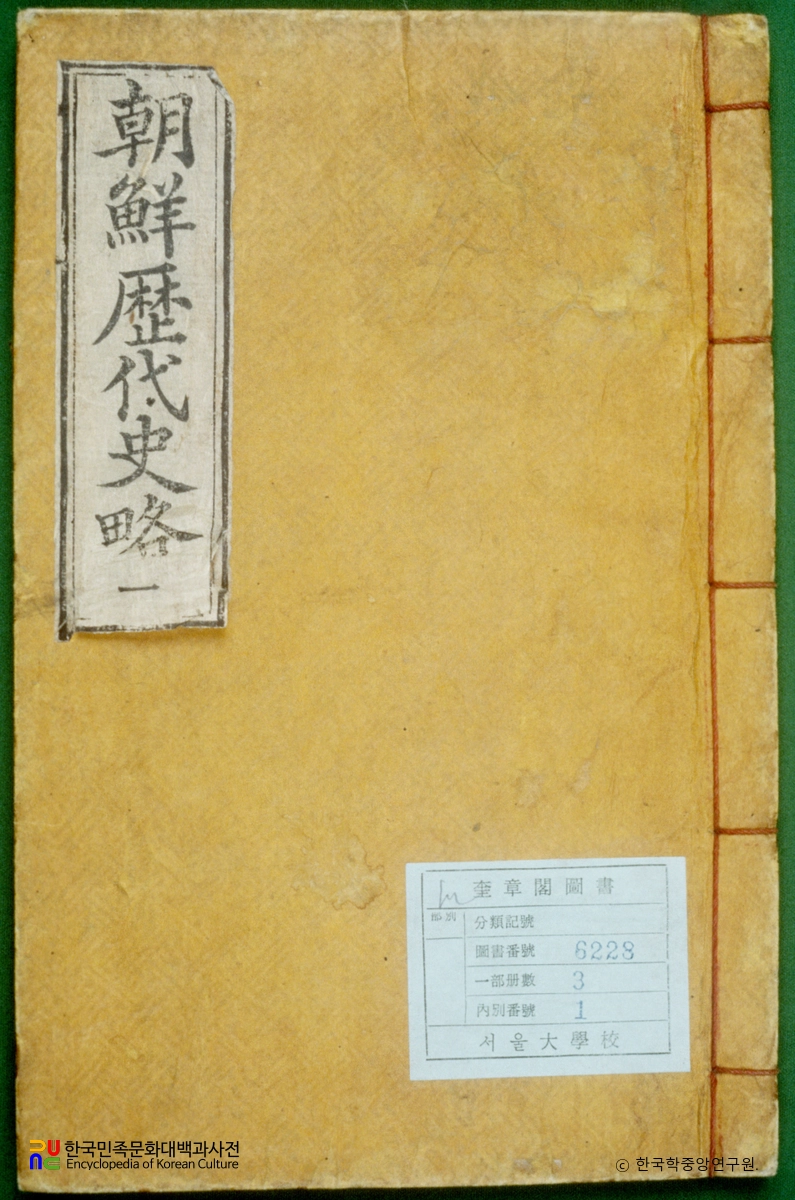 朝鮮歷代史略
一
奎章閣圖書
部別
分類記號
圖書番號 6228
一部册數 3
內別番號 1
서울大學校
한국민족문화대백과사전
Encyclopedia of Korean Culture
© 한국학중앙연구원.